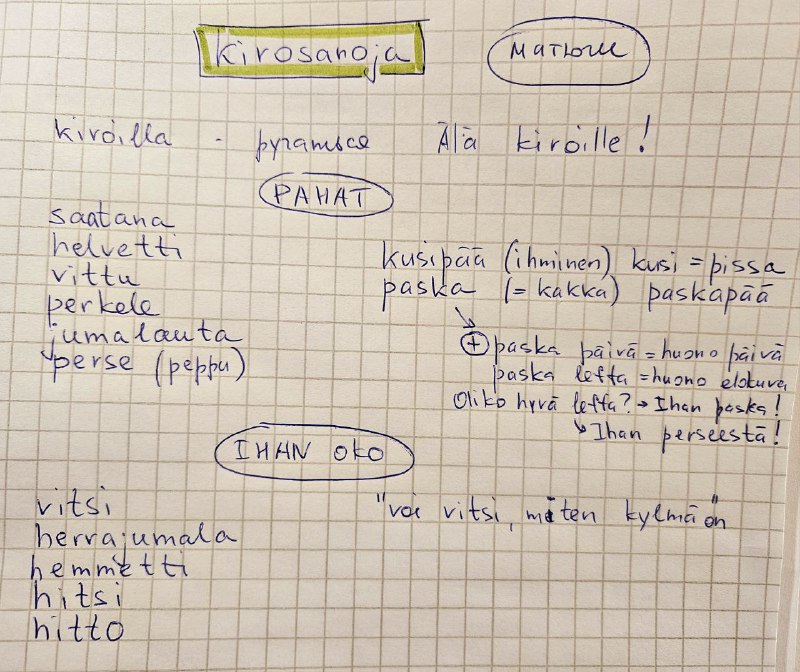 kirosanoja
маты
kiroilla - ругаться Älä kiroille!
PAHAT
saatana
helvetti
vittu
perkele
jumalauta
perse (peppu)
kusipää (ihminen) kusi = pissa
paska (= kakka) paskapää
+ paska päivä = huono päivä
paska leffa = huono elokuva
Oliko hyvä leffa? → Ihan paska!
↳ Ihan perseestä!
IHAN OKO
vitsi
herrajumala
hemmetti
hitsi
hitto
"voi vitsi, miten kylmä on"